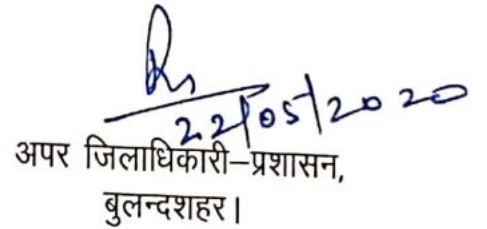 22/05/2020
अपर जिलाधिकारी–प्रशासन,
बुलन्दशहर।